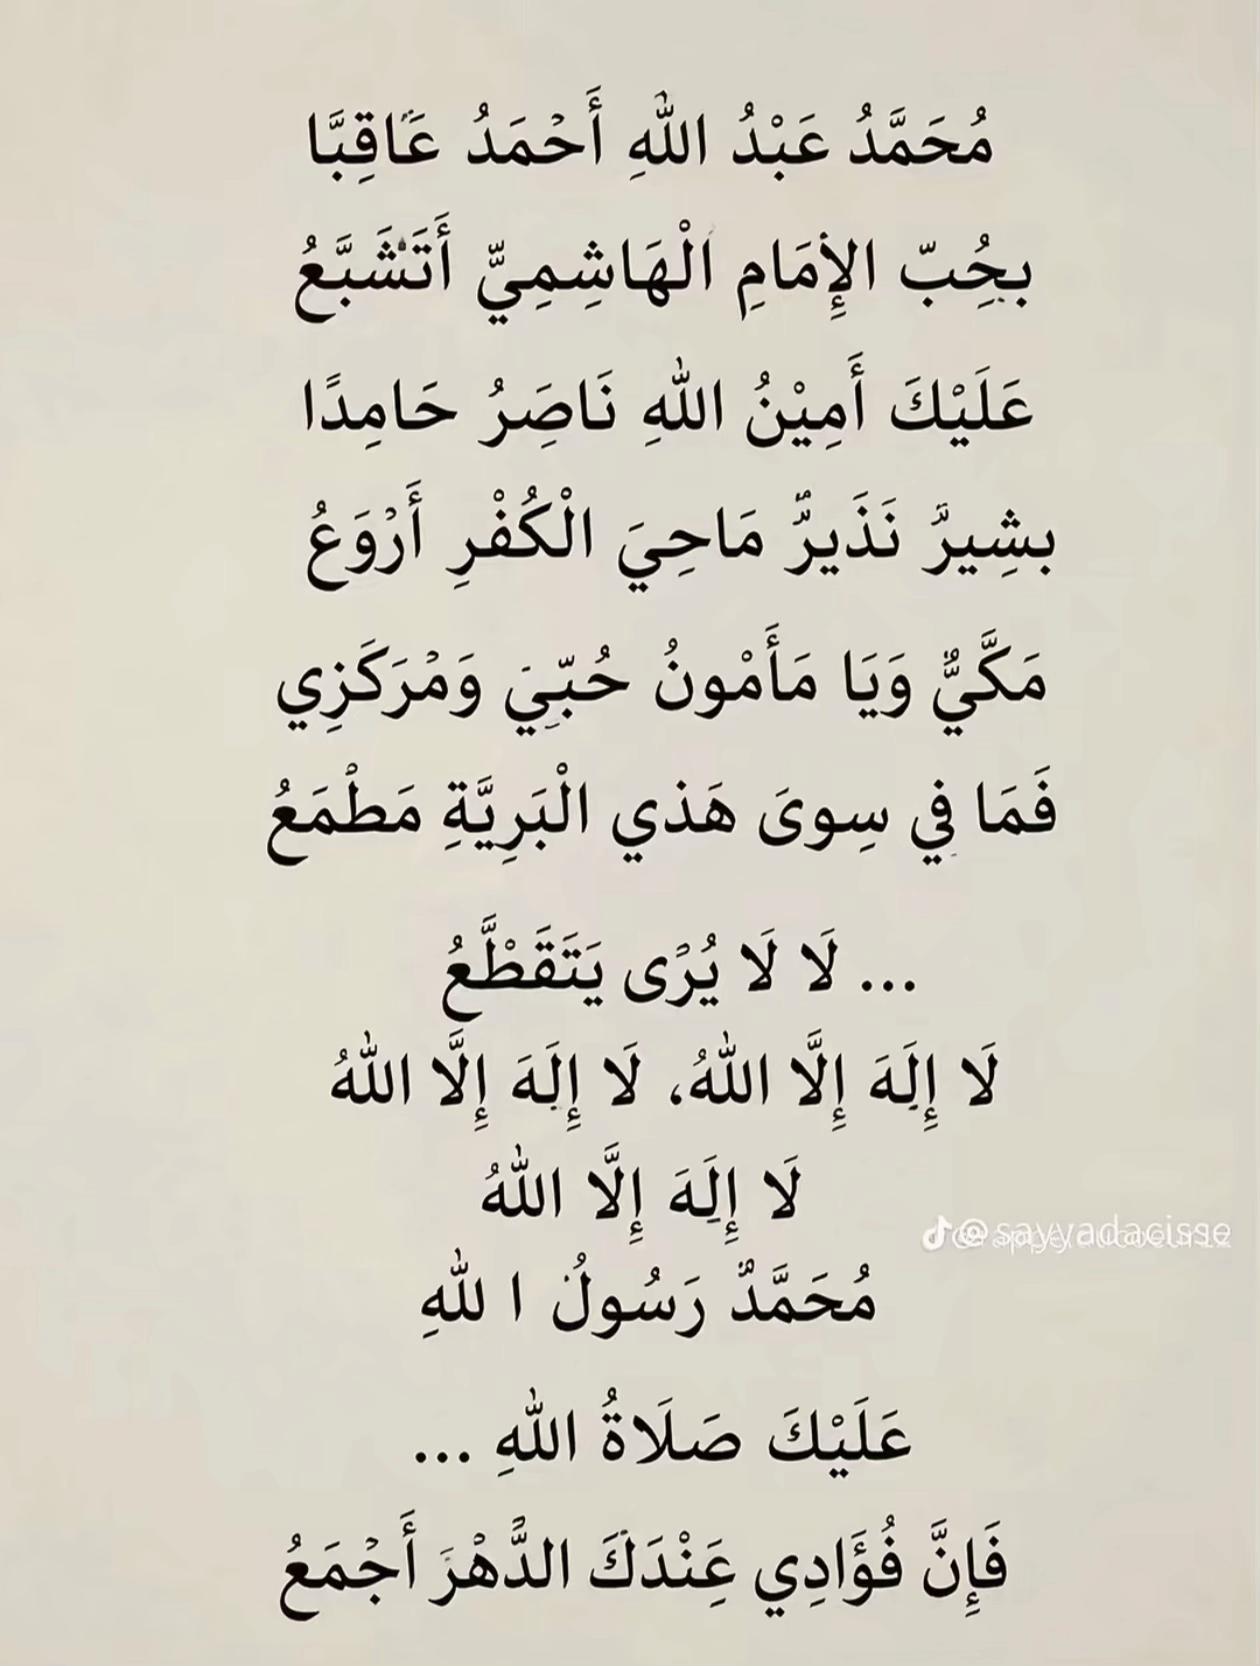 مُحَمَّدُ عَبْدُ اللهِ أَحْمَدُ عَاقِبًّا
بحُِبّ الإِمَامِ الْهَاشِمِيّ أَتَشَبَّعُ
عَلَيْكَ أَمِيْنُ اللهِ نَاصَِرُ حَامِدًا
بشِيرٌ نَذَيرٌ مَاحِيَ الْكُفْرِ أَرْوَعُ
مَكَّيٌّ وَيَا مَأَمْونُ حُبّيَِ وَمْرَكَزِي
فَمَا فِي سِوىَ هَذي الْبَرِيَّةِ مَطْمَعُ
... لَا لَا يُرْى يَتَقَطَّعُ
لَا إِلَهَ إِلَّا اللهُ، لَا إِلَهَ إِلَّا اللهُ
لَا إِلَهَ إِلَّا اللهُ
@sayyadacisse
مُحَمَّدٌ رَسُولُ ا للهِ
عَلَيْكَ صَلَاةُ اللهِ ...
فَإِنَّ فُؤَادِي عَِنْدَكَ الدَّهْرَ أَجْمَعُ